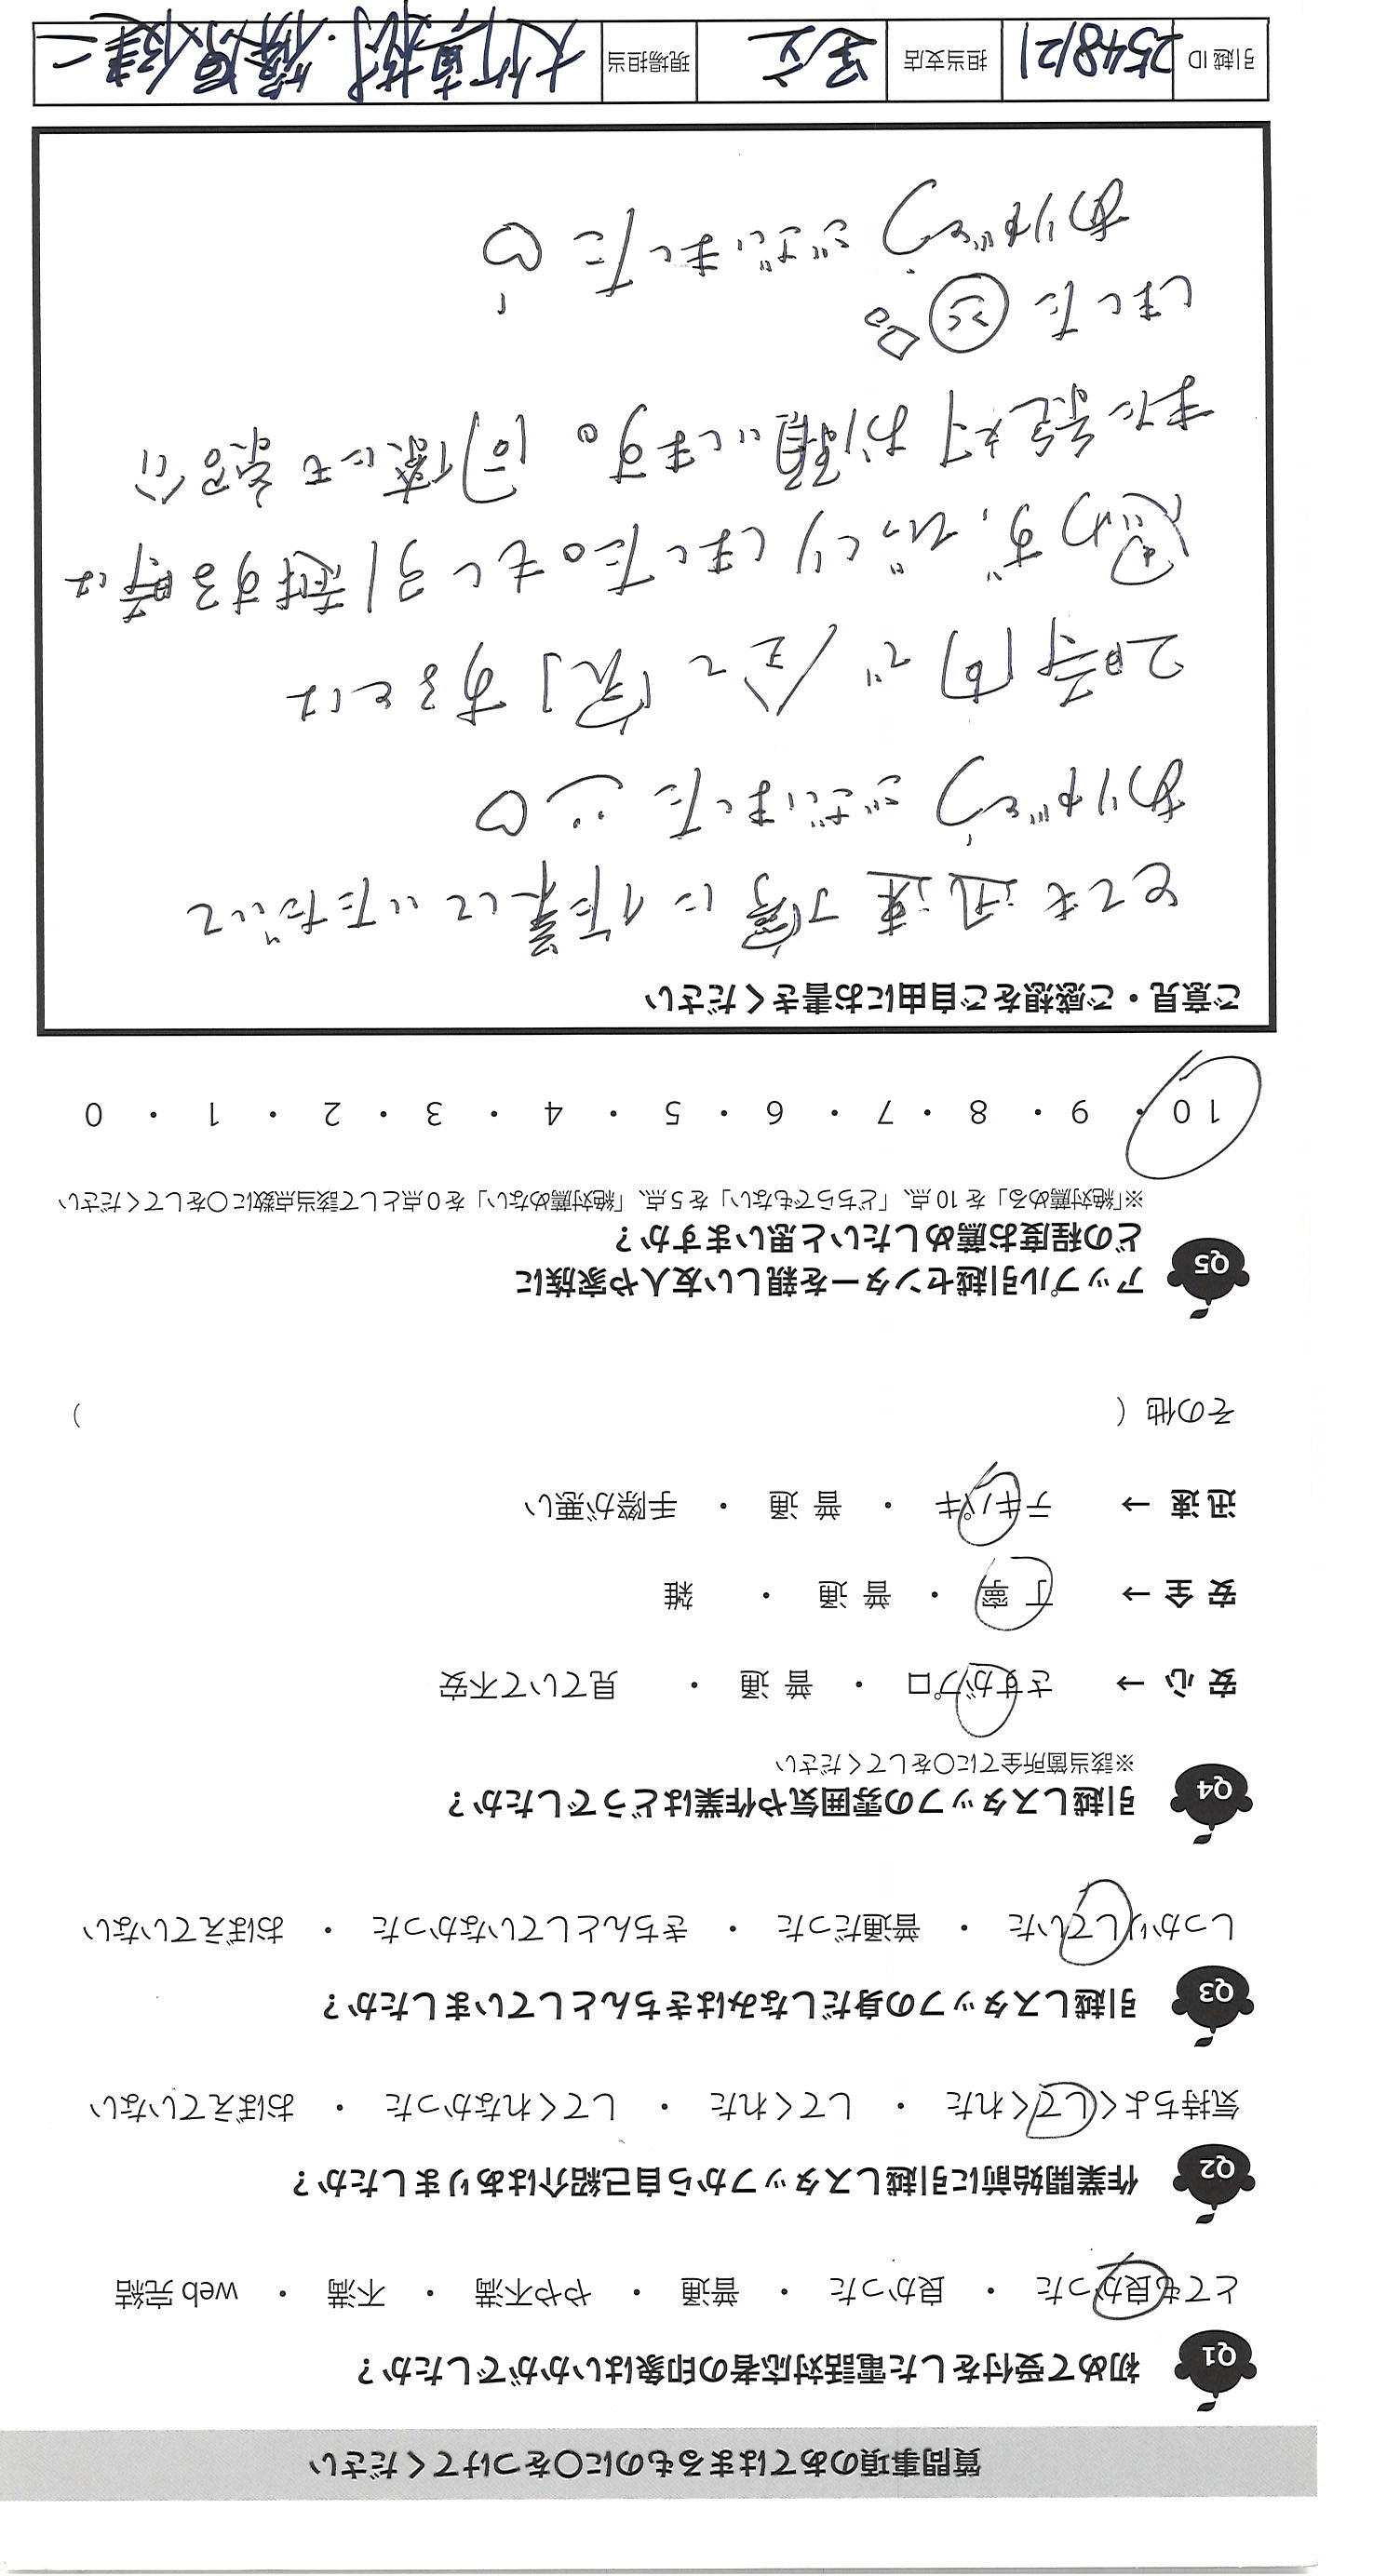 質問事項のあてはまるものに○をつけてください
Q1 初めて受付をした電話対応者の印象はいかがでしたか？
とても良かった ・ 良かった ・ 普通 ・ やや不満 ・ 不満 ・ web 完結
Q2 作業開始前に引越しスタッフから自己紹介はありましたか？
気持ちよくしてくれた ・ してくれた ・ してくれなかった ・ おぼえていない
Q3 引越しスタッフの身だしなみはきちんとしていましたか？
しっかりしていた ・ 普通だった ・ きちんとしていなかった ・ おぼえていない
Q4 引越しスタッフの雰囲気や作業はどうでしたか？
※該当箇所全てに○をしてください
安 心 → さすがプロ ・ 普 通 ・ 見ていて不安
安 全 → 丁 寧 ・ 普 通 ・ 雑
迅 速 → テキパキ ・ 普 通 ・ 手際が悪い
その他（ ）
Q5 アップル引越センターを親しい友人や家族に
どの程度お薦めしたいと思いますか？
※「絶対薦める」を 10 点、「どちらでもない」を 5 点、「絶対薦めない」を 0 点として該当点数に○をしてください
10 ・ 9 ・ 8 ・ 7 ・ 6 ・ 5 ・ 4 ・ 3 ・ 2 ・ 1 ・ 0
ご意見・ご感想をご自由にお書きください
とても迅速丁寧に作業していただいて
ありがとうございました
2時間で全て完了するとは
思わず、びっくりしました。もし引越する時は
また絶対お願いします。同僚にも紹介
しました
ありがとうございました
引越 ID 2548121 担当支店 現場担当 大竹直樹・篠原健二